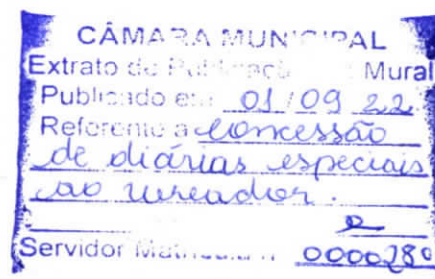 CÂMARA MUNICIPAL
Extrato de Publicação Mural
Publicado em 01/09 22
Referente a concessão
de diárias especiais
ao vereador.
Servidor Matrícula n 0000280